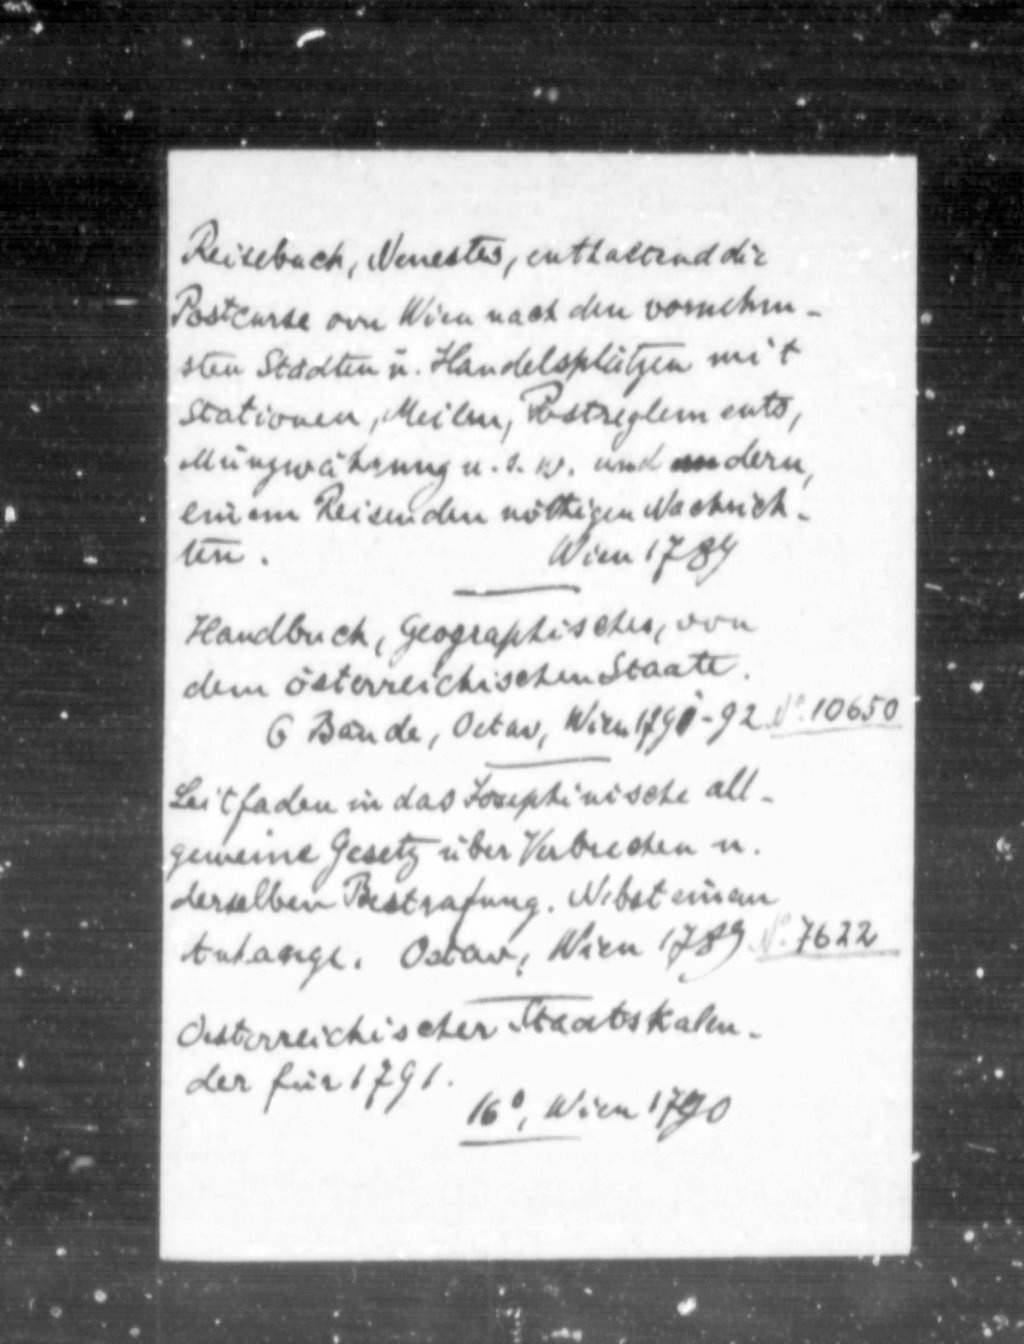 Reisebuch, Neuestes, enthaltend die
Postcurse von Wien nach den vornehm-
sten Städten u. Handelsplätzen mit
Stationen, Meilen, Postreglements,
Münzwährung u. s. w. und andern,
einem Reisenden nöthigen Nachrich-
ten. Wien 1789
Handbuch, Geographisches, von
dem österreichischen Staate.
6 Bände, Octav, Wien 1791-92 No. 10650
Leitfaden in das Josephinische all-
gemeine Gesetz über Verbrechen u.
derselben Bestrafung. Nebst einem
Anhange. Octav, Wien 1789 No. 7622
Oesterreichischer Staatskalen-
der für 1791.
16°, Wien 1790